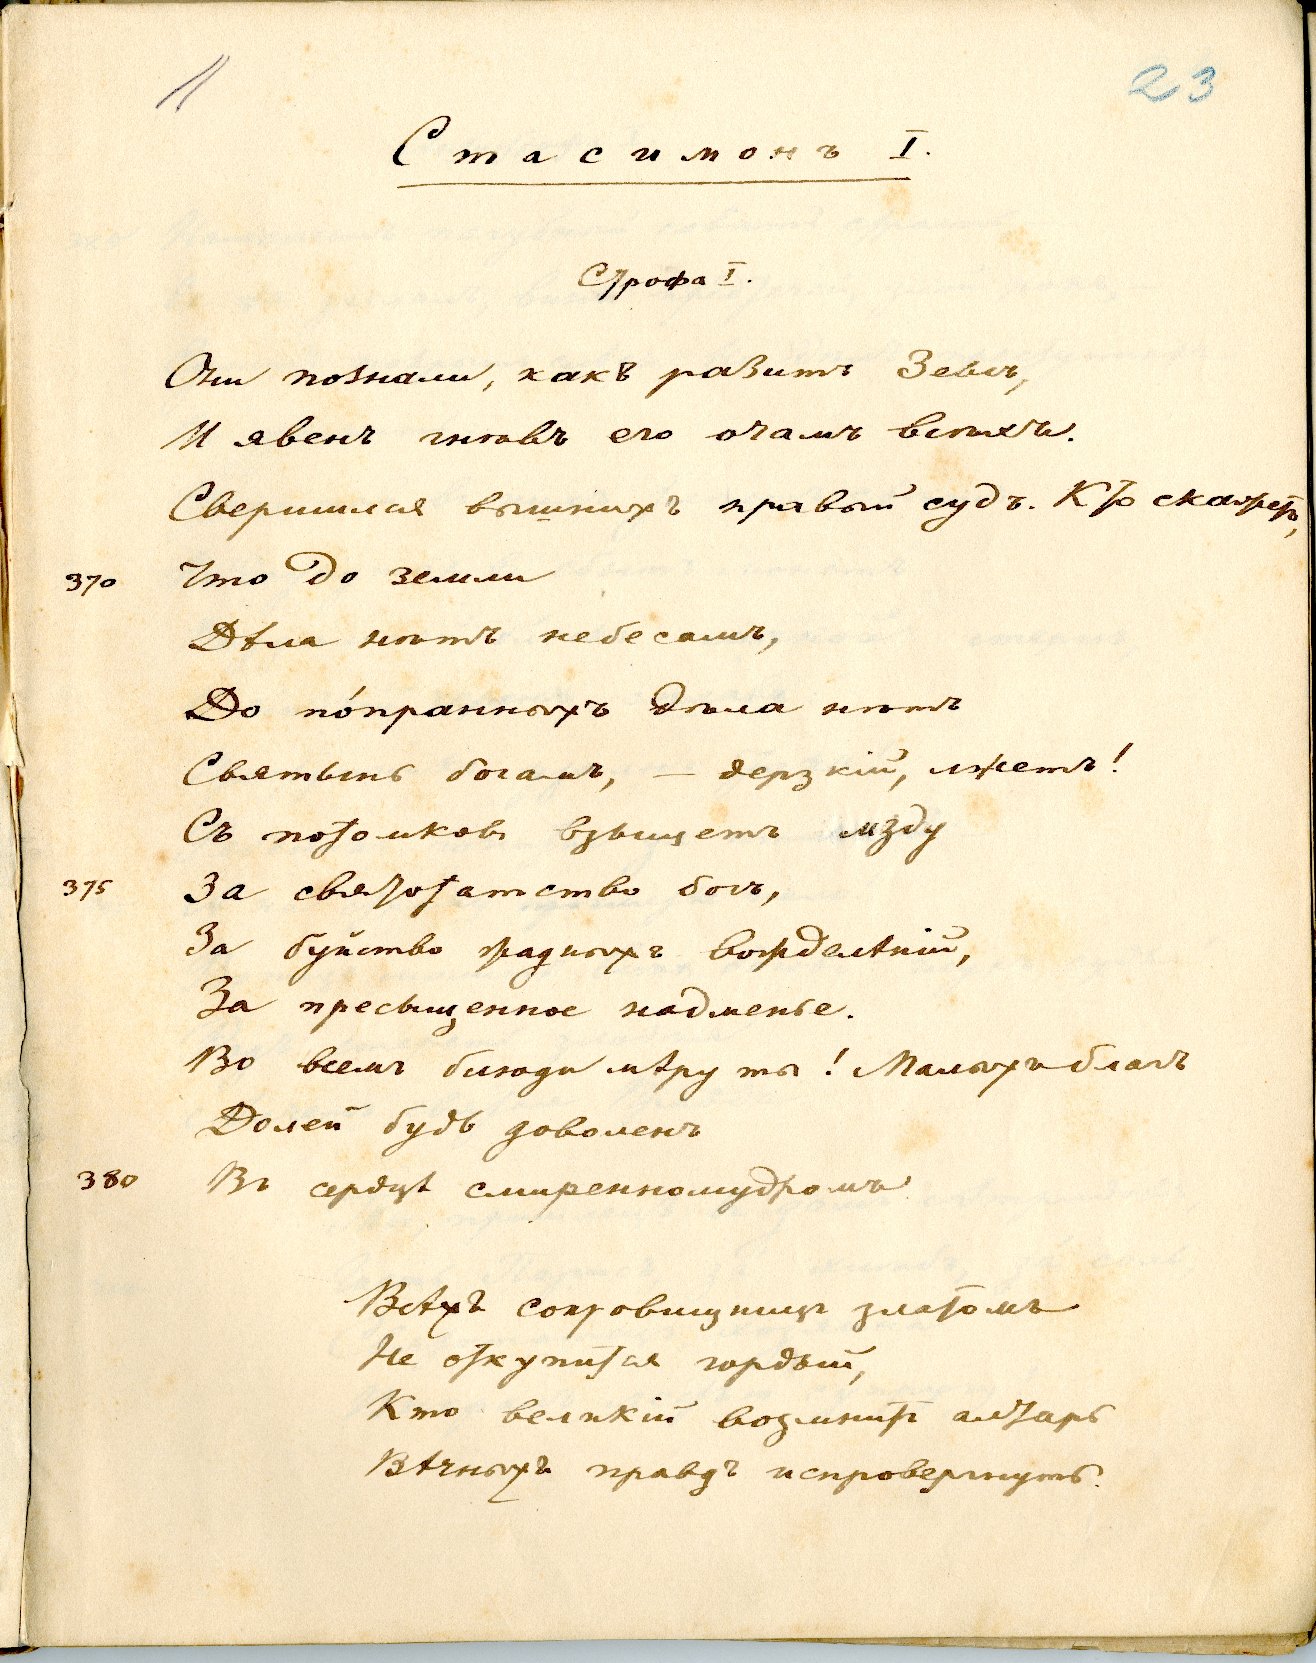 11
23
Стасимонъ I.
Строфа I.
Они познали, какъ разитъ Зевсъ,
И явенъ гнѣвъ его очамъ всѣхъ.
Свершился вышнихъ правый судъ. Кто скажетъ,
370 Что до земли
Дѣла нѣтъ небесамъ,
До по́пранныхъ дѣла нѣтъ
Святынь богамъ, — дерзкій, лжетъ!
Съ потомковъ взыщетъ мзду
375 За святотатство богъ,
За буйство жадныхъ вожделѣній,
За пресыщенное надменье.
Во всемъ блюди мѣру ты! Малыхъ благъ
Долей будь доволенъ
380 Въ сердцѣ смиренномудромъ
Всѣхъ сокровищницъ златомъ
Не откупится гордый,
Кто великій возмнитъ алтарь
Вѣчныхъ правдъ испровергнуть.